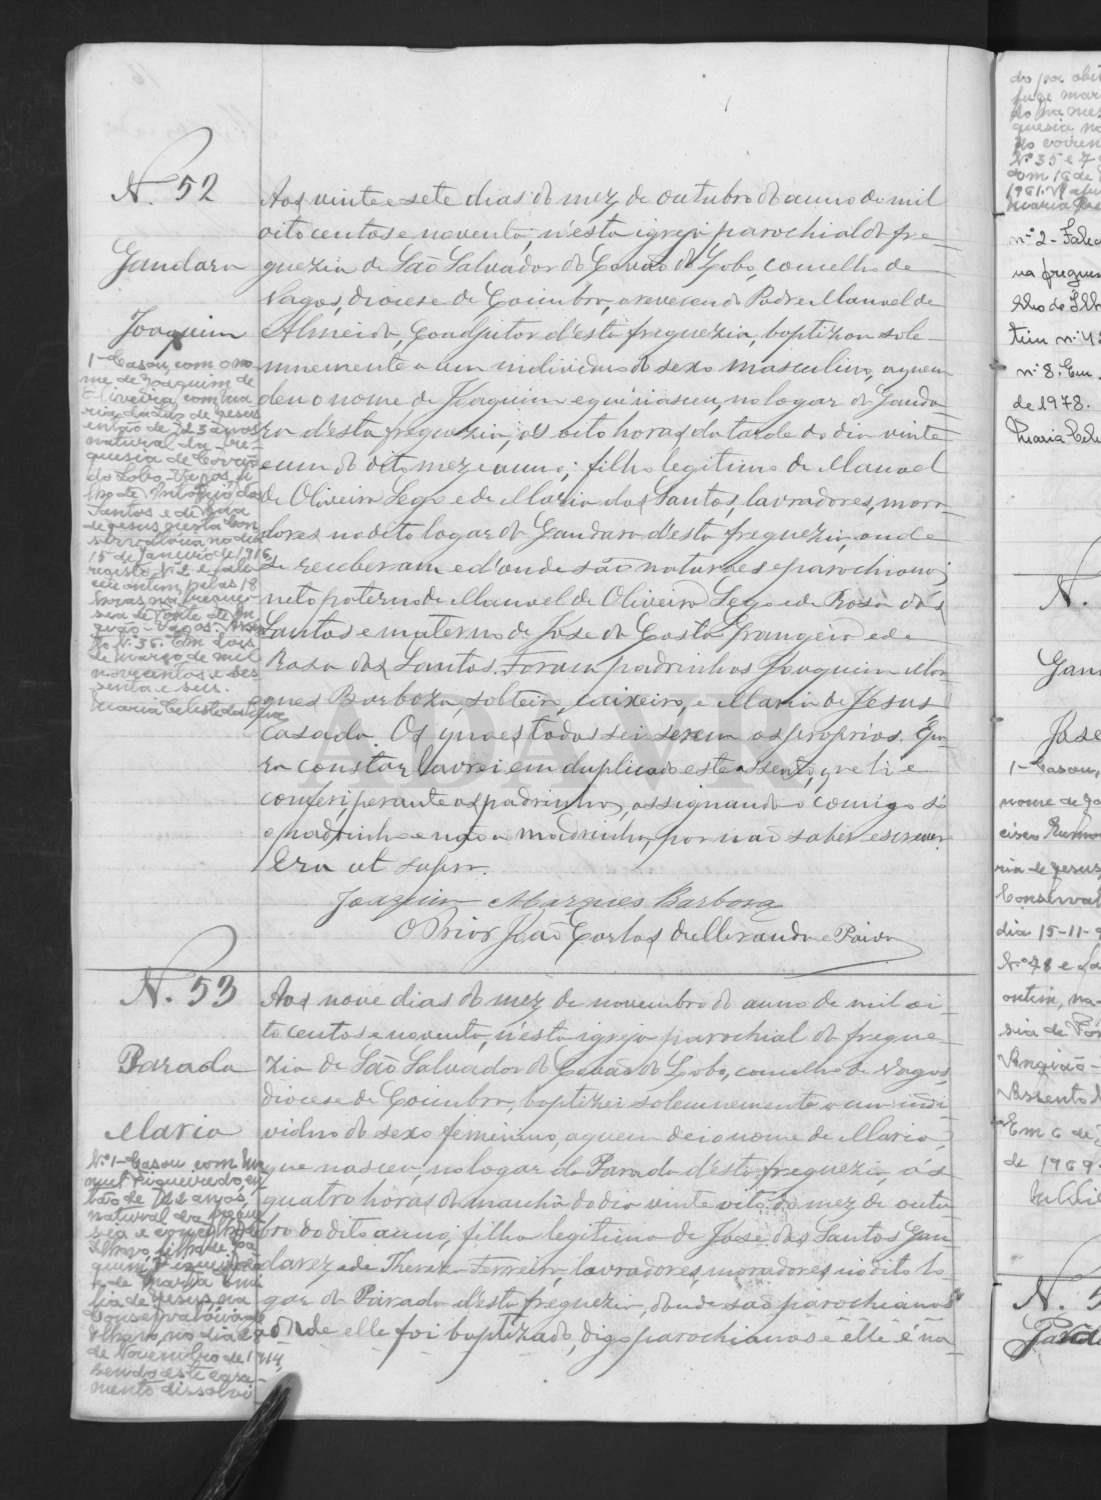 N. 52
Gandara
Joaquim
1-Casou com o no-
me de Joaquim de
Oliveira, com Ma-
ria da Luz de Jesus
então de 23 anos
natural da fre-
guesia de Covão
do Lobo, Vagos, fi-
lha de António dos
Santos e de Rosa
de Jesus, nesta Con-
servatória no dia
15 de Janeiro de 1916
registo Nº 2 e fale-
ceu ontem pelas 18
horas na fregue-
sia de Ponte de Va-
gos
to N. 35. Em dois
de março de mil
novecentos e ses-
senta e seis.
Maria Celeste da Silva
Aos vinte e sete dias do mez de outubro do anno de mil
oito centos e noventa, n'esta igreja parochial da fre-
guezia de São Salvador do Covão do Lobo, concelho de
Vagos, diocese de Coimbra, o reverendo Padre Manoel de
Almeida, Coadjutor d'esta freguezia, baptizou sole-
mnemente a um individuo do sexo masculino, a quem
deu o nome de Joaquim e que nasceu, no logar da Ganda-
ra d'esta freguezia, ás oito horas da tarde do dia vinte
e um do dito mez e anno; filho legitimo de Manoel
de Oliveira Lego e de Maria dos Santos, lavradores, mora-
dores no dito logar da Gandara d'esta freguezia, onde
se receberam e d'onde são naturaes e parochianos;
neto paterno de Manoel de Oliveira Lego e de Rosa dos
Santos e materno de José da Costa Frangeiro e de
Rosa dos Santos. Foram padrinhos Joaquim Mar-
ques Barboza, solteiro, caixeiro, e Maria de Jesus
casada. Os quaes todos sei serem os proprios. E pa-
ra constar lavrei em duplicado este assento, que li e
conferi, perante os padrinhos, assignando-o comigo só
o padrinho e não a madrinha, por não saber escrever.
Era ut supra.
Joaquim Marques Barboza
O Prior João Carlos de Miranda e Paiva
N. 53
Parada
Maria
Nº 1-Casou com Ma-
nuel Figueiredo, en-
tão de 22 anos,
natural da fregue-
sia e concelho de
Ilhavo, filho de Joa-
quim Figueiredo
e de Maria Emi-
lia de Jesus, na
Conservatória de
Ilhavo, no dia
de Novembro de 1914,
sendo este casa-
mento dissolvi-
Aos nove dias do mez de novembro do anno de mil oi-
to centos e noventa, n'esta igreja parochial da fregue-
zia de São Salvador do Covão do Lobo, concelho de Vagos,
diocese de Coimbra, baptizei solemnemente a um indi-
viduo do sexo feminino, a quem dei o nome de Maria,
que nasceu, no logar da Parada d'esta freguezia, ás
quatro horas da manhã do dia vinte oito do mez de outu-
bro do dito anno; filha legitima de José dos Santos Gan-
darez e de Thereza Ferreira, lavradores, moradores no dito lo-
gar da Parada d'esta freguezia, donde são parochianos
aonde elle foi baptizado, digo parochianos e elle é na-
do por obi
N. 35 e 7
dom 16 de
1961.
Maria
nº 2- Falec
na fregue
lho de Ilh
tim nº 4
nº 8. Em
de 1978.
Maria Cel
N.
Gan
José
1-Casou,
nome de Jo
ria de Jesus
Conserva
dia 15-11-
Nº 78 e fa
ontem, na
sia de Pon
Assento
Em 6 de
de 1969
N. 5
Ganda